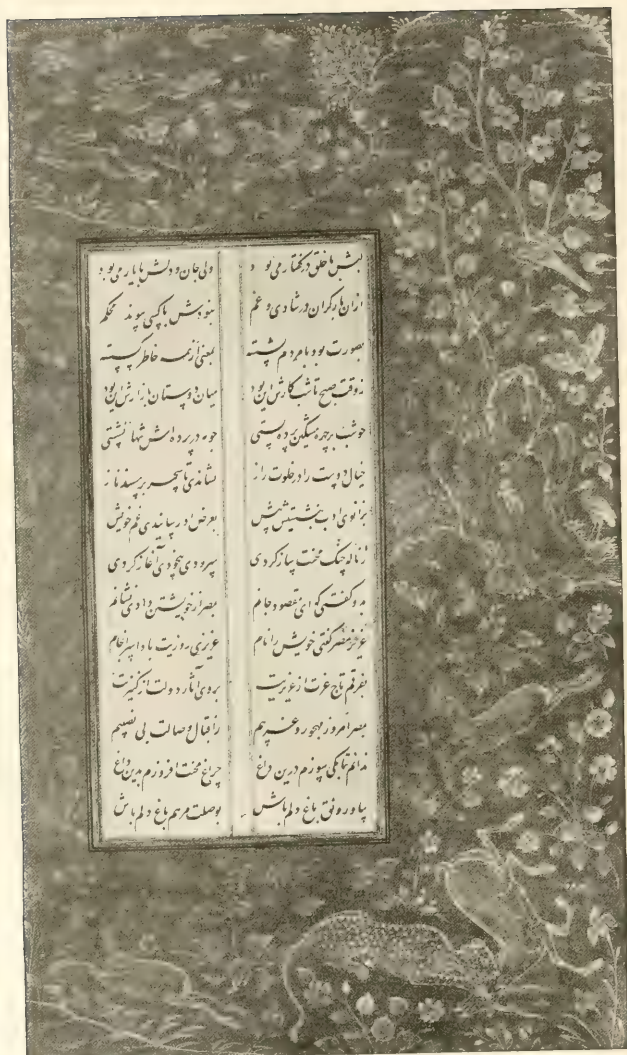 لبش با خلق در گفتار می بود ولی جان و دلش با یار می بود
ازان بار گران در شادی و غم نبودش با کسی پیوند محکم
بصورت بود با مردم نشسته بمعنی از همه خاطر گسسته
ز وقت صبح تا شب کارش این بود میان دوستان بازارش این بود
چو شب بر چهره مشکین پرده بستی چو مه در پرده اش تنها نشستی
خیال دوست را در خلوت راز نشاندی تا سحر بر مسند ناز
بزانوی ادب بنشستیش پیش بعرض او رسانیدی غم خویش
ز ناله چنگ محنت ساز کردی سرود بیخودی آغاز کردی
بدو گفتی که ای مقصود جانم بمصر از خویشتن دادی نشانم
عزیز مصر گفتی خویش را نام عزیزی روزیت باد سرانجام
بفرقم تاج عزت از عزیزیت بروی آثار دولت از کنیزیت
بمصر امروز مهجور و غریبم ز اقبال وصالت بی نصیبم
ندانم تا بکی سوزم درین داغ چراغ محنت افروزم بدین داغ
بیا و رونق باغ دلم باش بوصلت مرهم داغ دلم باش